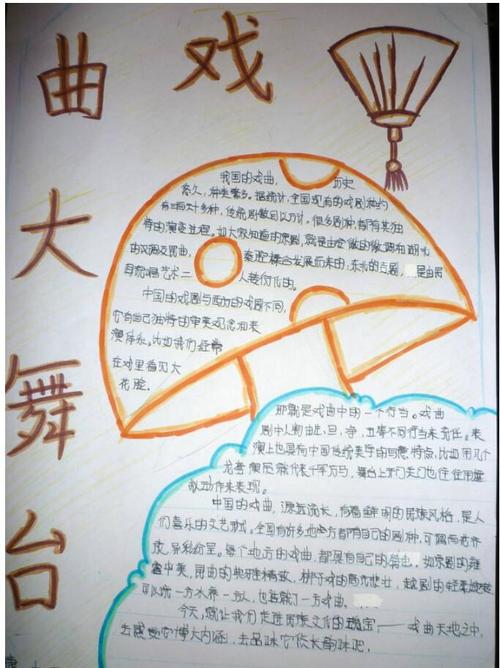 戏
曲
大
舞
台
我国的戏曲,
历史
悠久,种类繁多。据统计,全国现有的戏剧种约
有三百六十多种,传统剧数目以万计。很多剧种,都有其独
特的演变过程。如大家知道的京剧,就是由安徽的徽调和湖北
的汉调及昆曲,
秦腔糅合发展而来的;东北的吉剧,
是由民
间歌唱艺术二
人转衍化的。
中国的戏剧与西方的戏剧不同,
它有自己独特的审美观念和表
演体系。比如我们经常
在戏里看见大
花脸,
那就是戏曲中的一个行当。戏曲
剧中人物由生,旦,净,丑等不同行当来充任。表
演上也具有中国传统美学的写意特点,比如用几个
龙套演员就代表千军万马,舞台上开门关门也往往用虚
拟动作来表现。
中国的戏曲,源远流长,有着鲜明的民族风格,是人
们喜乐的文艺形式。全国有许多地方都有自己的剧种,可谓百花齐
放,异彩纷呈。每个地方的戏曲,都具有自己的特色,如京剧的雍
容华美,昆曲的典雅精致,
的高亢悲壮,越剧的轻柔婉转
可以说一方水养一方人,也造就了一方戏曲。
今天,就让我们走进民族文化的瑰宝——戏曲天地之中,
去感受它博大内涵,去品味它悠长韵味吧。